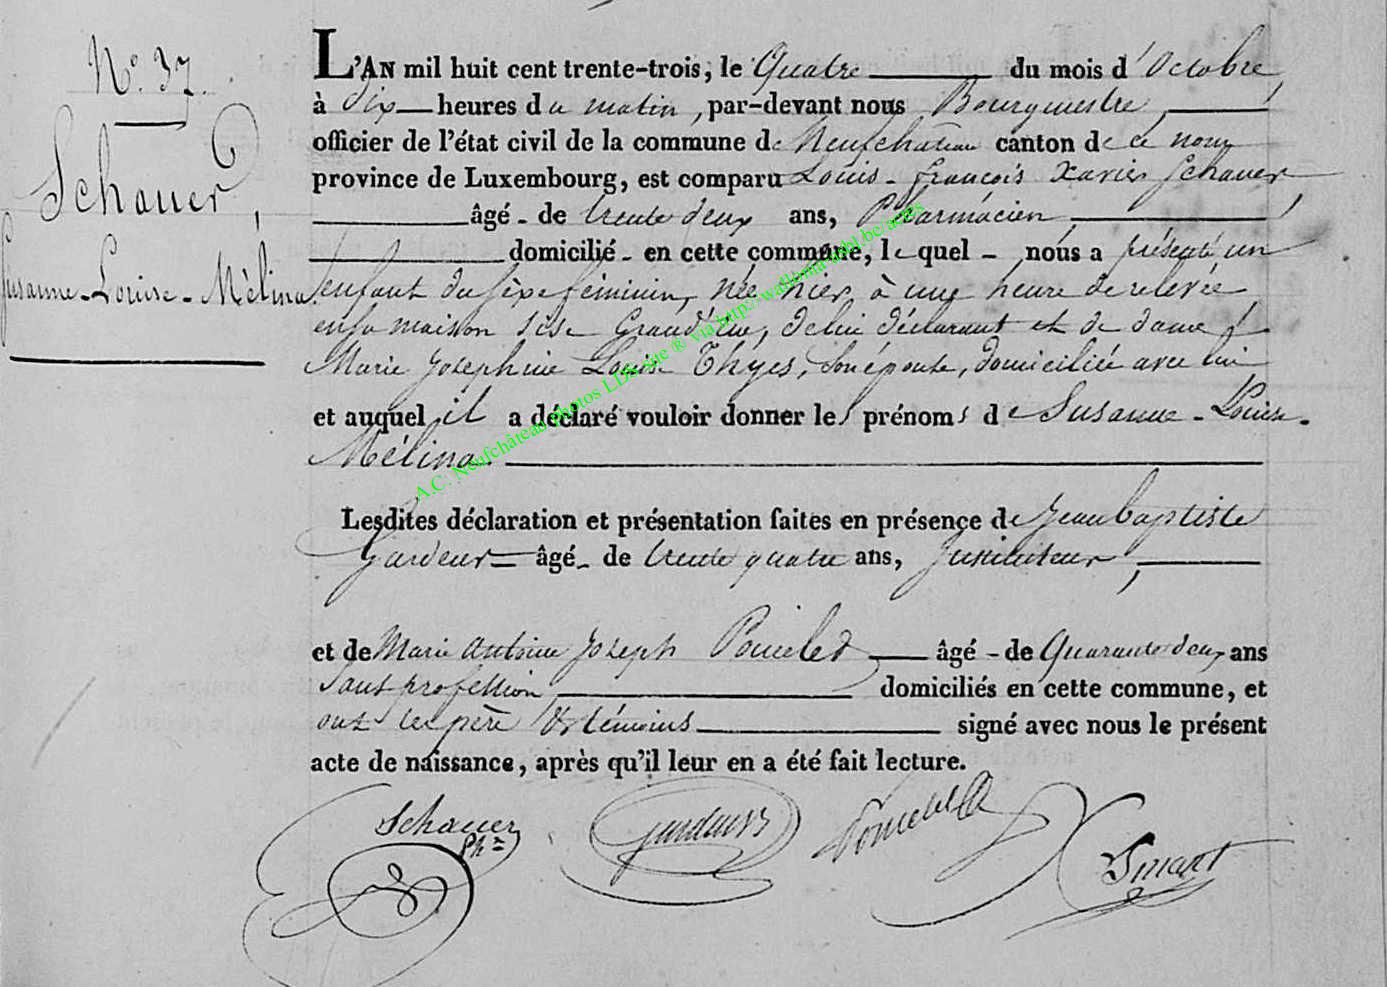 N.° 37.
Schauer,
Susanne-Louise-Mèlina.
L'AN mil huit cent trente-trois, le Quatre du mois d'Octobre,
à Dix heures du matin, par-devant nous Bourgmestre,
officier de l'état civil de la commune de Neufchateau canton de ce nom
province de Luxembourg, est comparu Louis-François Xavier Schauer,
âgé - de trente deux ans, Pharmacien,
domicilié - en cette commune, le quel - nous a présenté un
enfant du sèxe féminin, née hier, à une heure de relevée,
en sa maison sise Grand'rue, de lui déclarant et de dame
Marie Josephine Louise Thyes, son épouse, domiciliée avec lui
et auquel il a déclaré vouloir donner les prénoms de Susanne-Louise-
Mélina.
Lesdites déclaration et présentation faites en présence de Jean baptiste
Gardeur âgé - de trente quatre ans, Instituteur,
et de Marie Antoine Joseph Poncelet âgé - de Quarante deux ans
sans profession domiciliés en cette commune, et
ont les père & témoins signé avec nous le présent
acte de naissance, après qu'il leur en a été fait lecture.
Schauer
Phen
Gardeur
Poncelet
A.C. Neufchâteau Photos LDS site ® via http://wallonia-asbl.be/actes